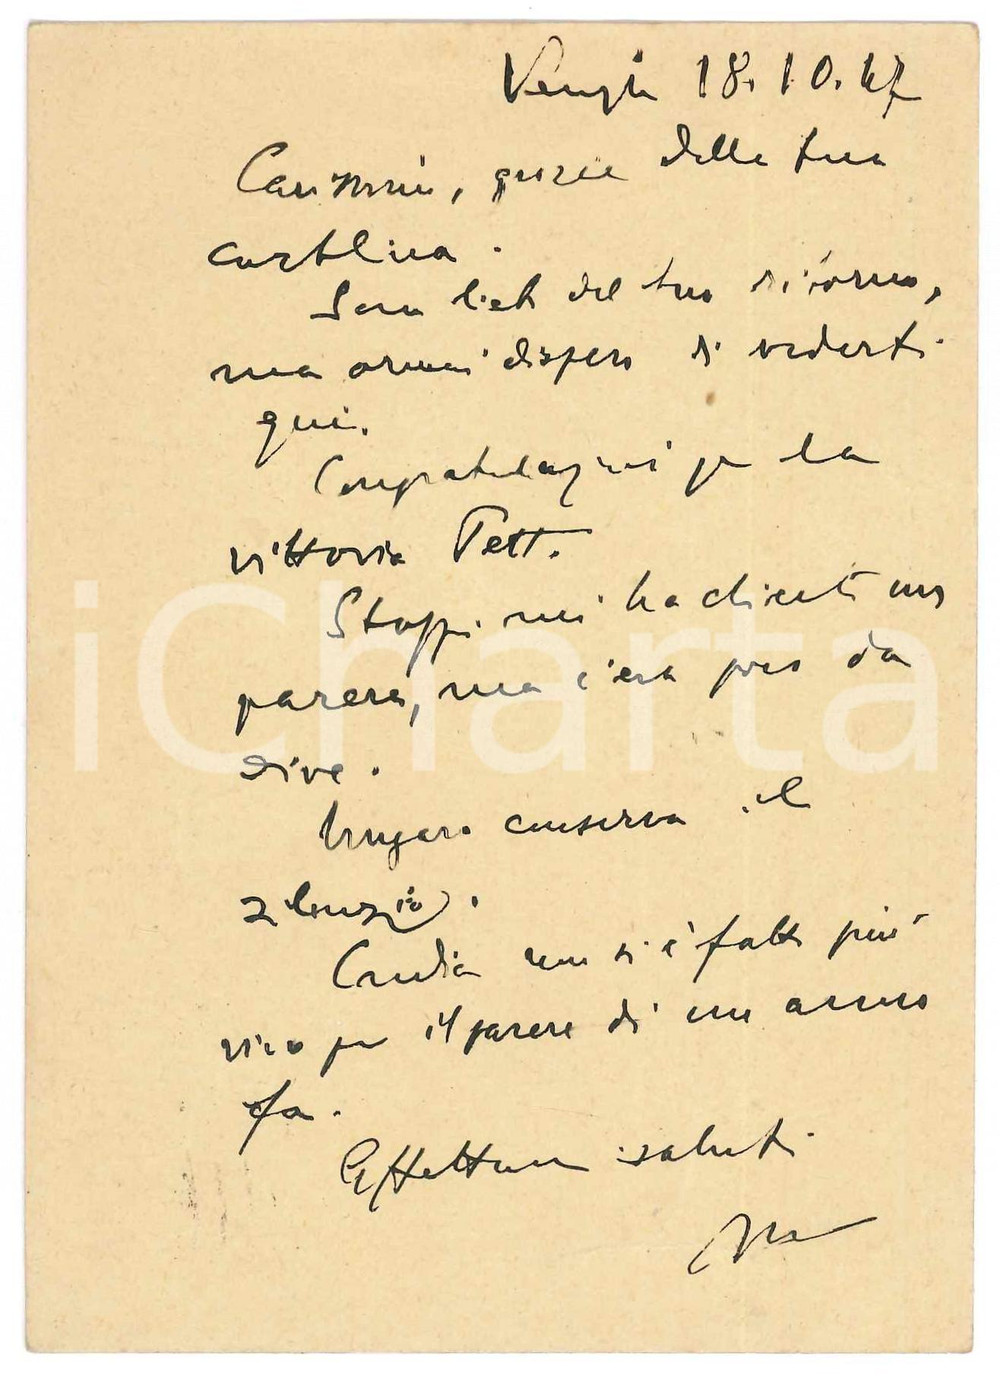 18.10.47
Carissimo, grazie della tua
cartolina.
Sono lieto del tuo ritorno,
ma ormai dispero di vederti
qui.
Congratulazioni per la
vittoria Tett.
Stoppi mi ha chiesto un
parere, ma c'era poco da
dire.
conserva il
silenzio.
non si è fatto più
vivo per il parere di un anno
fa.
Affettuosi saluti
iCharta